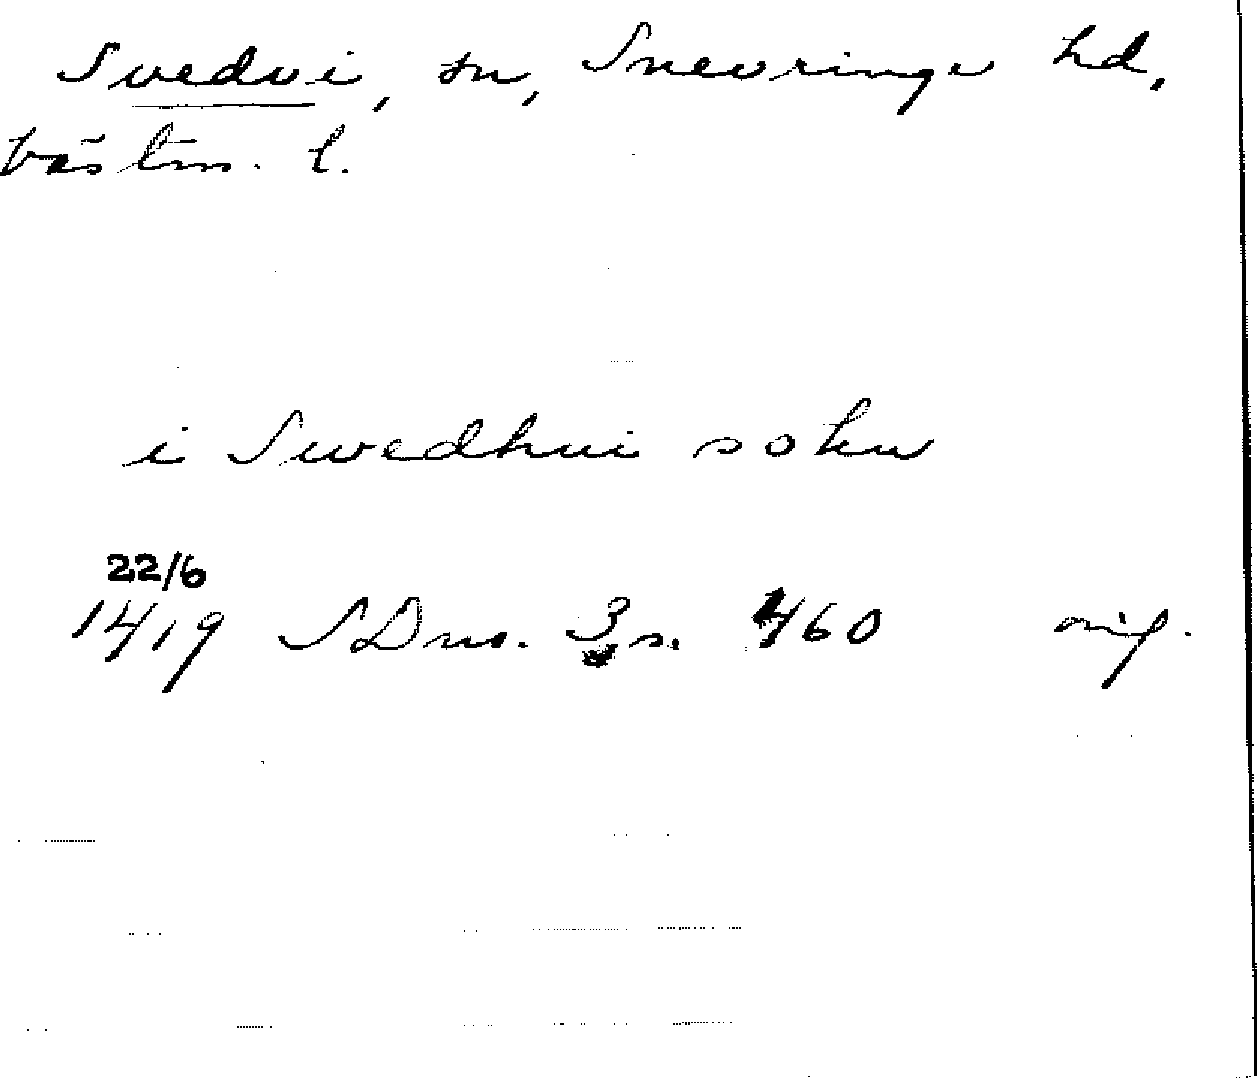 Svedvi, sn, Snevringe hd,
Västm. l.
i Swedhui sokn
22/6
1419 SDns. 3 s. 460 orig.